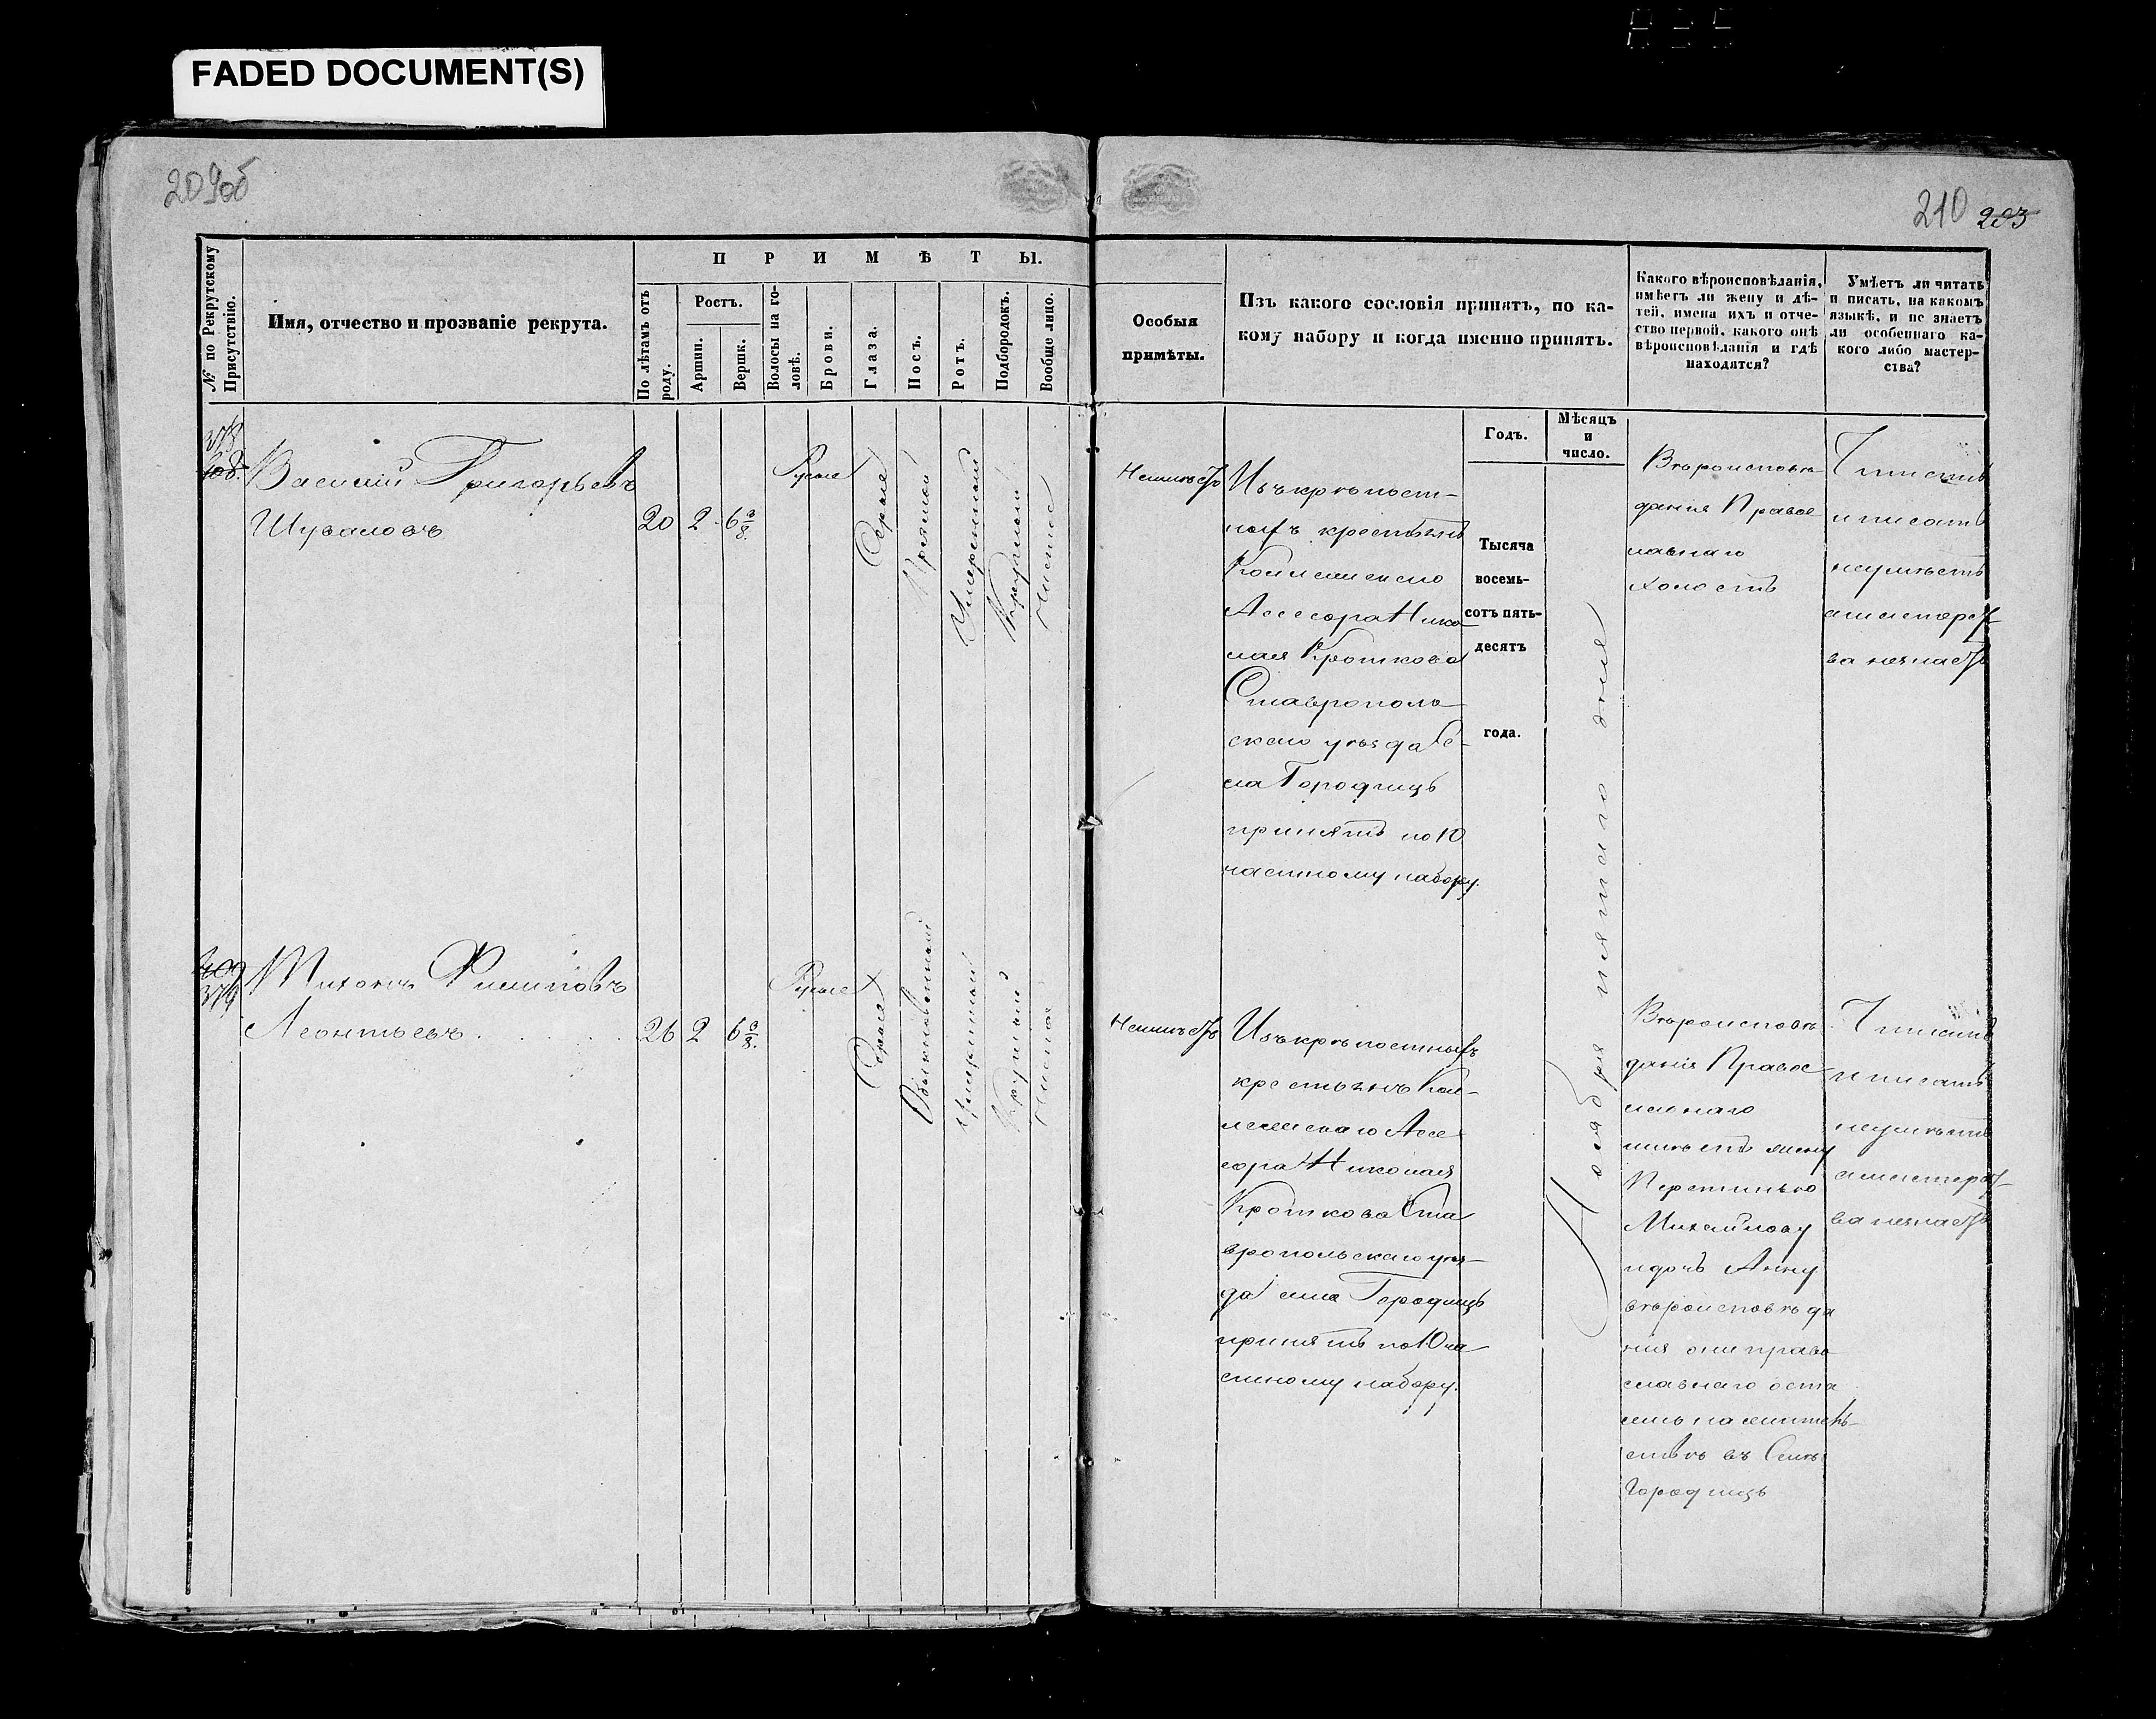 FADED DOCUMENT(S)
209об
210 203
№ по Рекрутскому Присутствію.
Имя, отчество и прозваніе рекрута.
ПРИМѢТЫ.
По лѣтамъ отъ роду.
Ростъ.
Аршин.
Вершк.
Волосы на головѣ.
Брови.
Глаза.
Носъ.
Ротъ.
Подбородокъ.
Вообще лицо.
Особыя
примѣты.
Изъ какого сословія принятъ, по ка-
кому набору и когда именно принятъ.
Какого вѣроисповѣданія,
имѣетъ ли жену и дѣ-
тей, имена ихъ и отче-
ство первой, какого онѣ
вѣроисповѣданія и гдѣ
находятся?
Умѣетъ ли читать
и писать, на какомъ
языкѣ, и не знаетъ
ли особеннаго ка-
кого либо мастер-
ства?
Годъ.
Мѣсяцъ
и
число.
Тысяча
восемь-
сотъ пять-
десятъ
года.
Ноября пятаго дня
378
Василій Григорьевъ
Шуваловъ
20 2 6 3/8
Русые
Серые
Прямой
Умеренный
Круглый
Чистое
Неимѣетъ
Изъ крѣпост-
ныхъ крестьянъ
Коллежскаго
Асесора Нико-
лая Кроткова
Ставрополь-
скаго уѣзда Се-
ла Городищь
принятъ по 10
частному набору.
Вѣроисповѣ-
данія Правос
лавнаго
холостъ
Читать
и писать
неумѣетъ
а мастерст-
ва незнаетъ
379
Тихонъ Филиповъ
Леонтьевъ
26 2 6 3/8.
Русые
Серые
Обыкновенный
Умеренный
Круглый
Чистое
Неимѣетъ
Изъ крѣпостныхъ
крестьянъ Кол-
лежскаго Асе
сора Николая
Кроткова Ста
вропольскаго уѣз-
да села Городищь
принятъ по 10 ча
стному набору.
Вѣроисповѣ
данія Правос
лавнаго
имѣетъ жену
Михайлову
и дочь Анну
вѣроисповѣда
нія они право
славнаго оста
лись на житель-
ствѣ въ Селѣ
Городищь
Читать
и писать
неумѣетъ
а мастерст-
ва незнаетъ